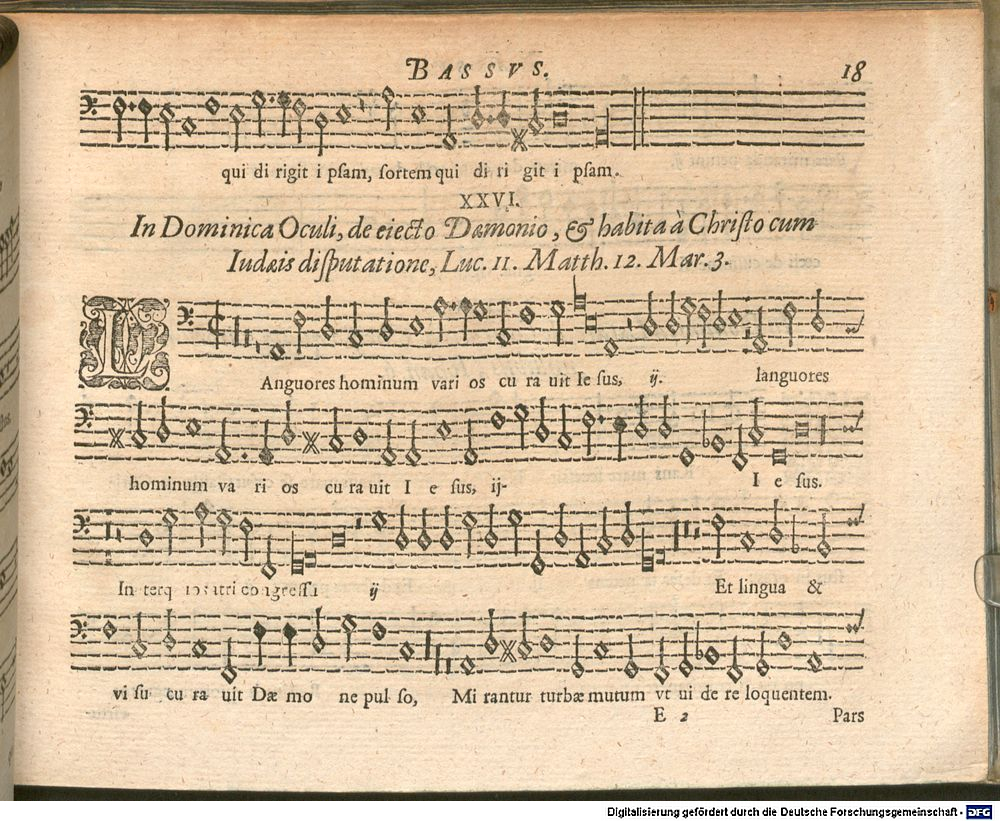 BASSVS. 18
qui di rigit i psam, sortem qui di ri git i psam.
XXVI.
In Dominica Oculi, de eiecto Dæmonio, & habita à Christo cum
Iudæis disputatione, Luc. 11. Matth. 12. Mar. 3.
LAnguores hominum vari os cu ra uit Ie sus, ij. languores
hominum va ri os cu ra uit I e sus, ij- I e sus.
In terq atri congressu ij Et lingua &
vi su cu ra uit Dæ mo ne pul so, Mi rantur turbæ mutum vt ui de re loquentem.
E 2 Pars
Digitalisierung gefördert durch die Deutsche Forschungsgemeinschaft - DFG